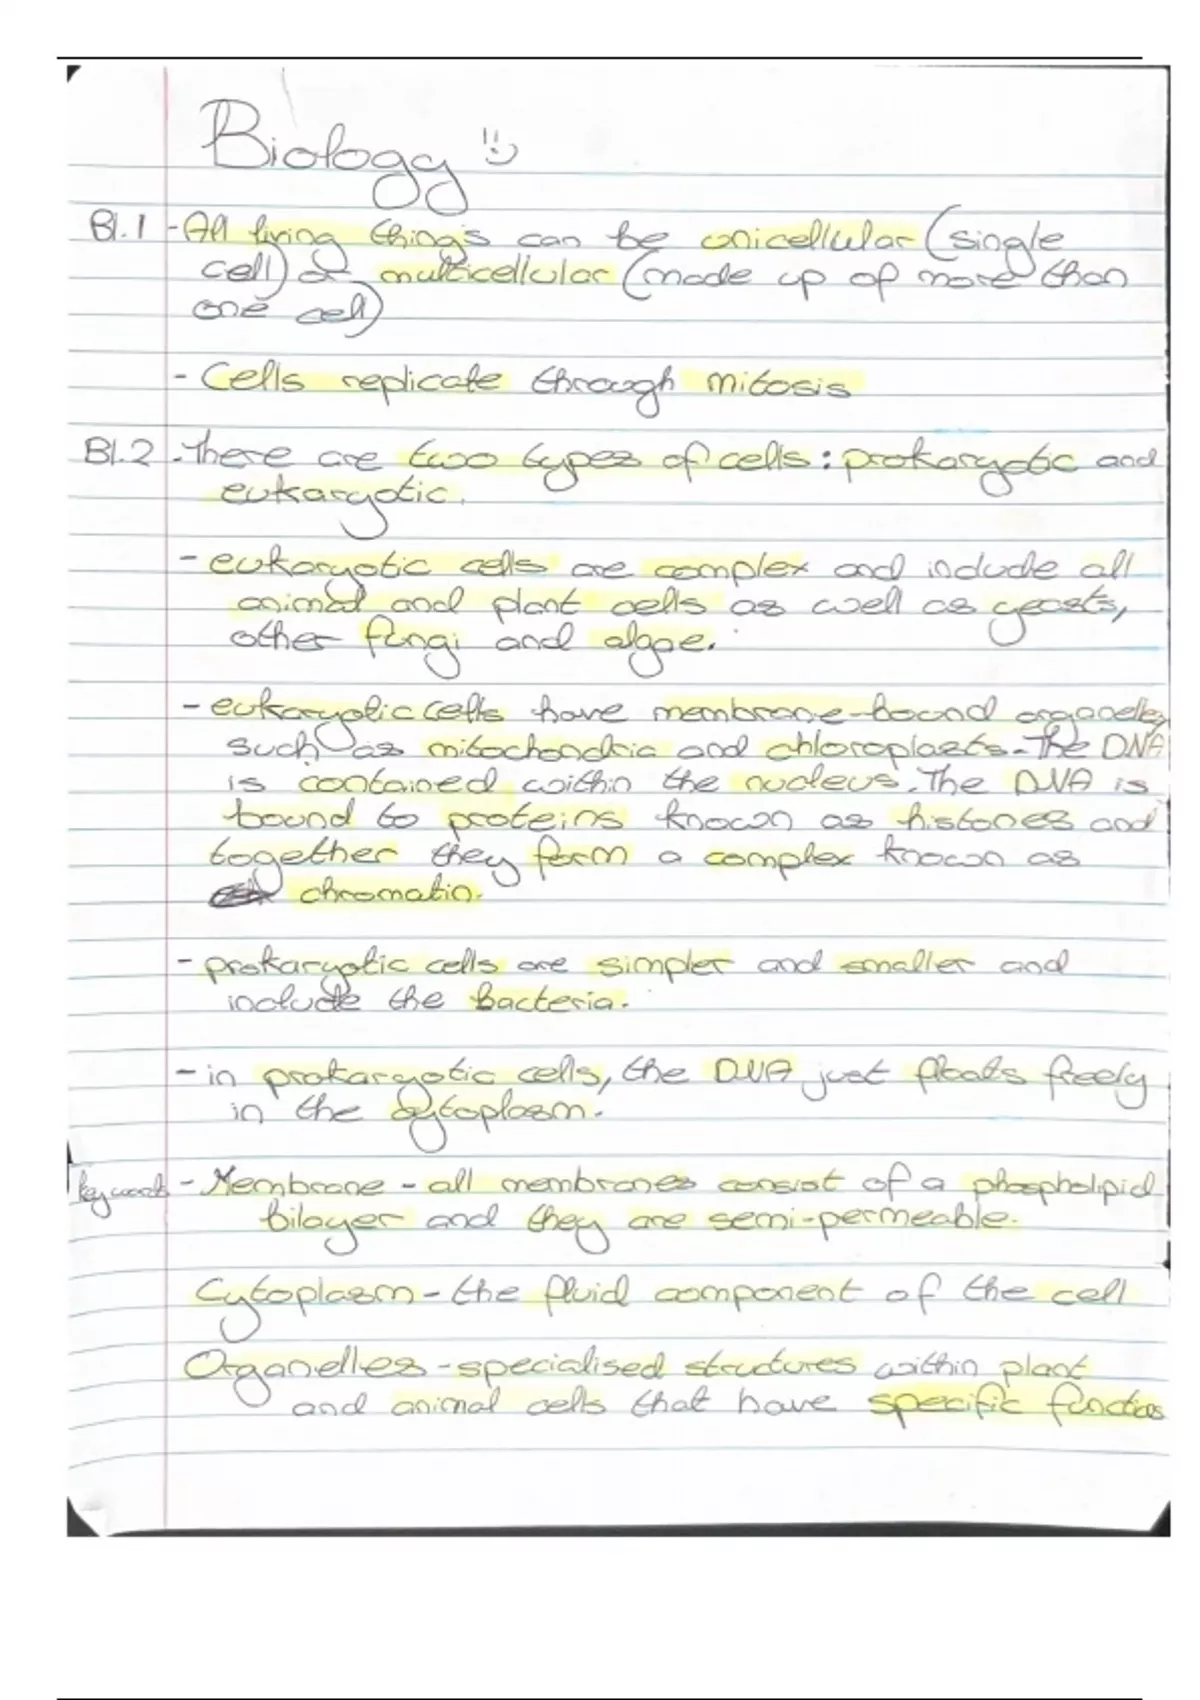 Biology
B1.1 - All living things can be unicellular (single
cell) or multicellular (made up of more than
one cell)
- Cells replicate through mitosis
B1.2 - There are two types of cells: prokaryotic and
eukaryotic.
- eukaryotic cells are complex and include all
animal and plant cells as well as yeasts,
other fungi and algae.
- eukaryotic cells have membrane-bound organelles
such as mitochondria and chloroplasts. The DNA
is contained within the nucleus. The DNA is
bound to proteins known as histones and
together they form a complex known as
chromatin.
- prokaryotic cells are simpler and smaller and
include the bacteria.
- in prokaryotic cells, the DNA just floats freely
in the cytoplasm.
key words - Membrane - all membranes consist of a phospholipid
bilayer and they are semi-permeable.
Cytoplasm - the fluid component of the cell
Organelles - specialised structures within plant
and animal cells that have specific functions